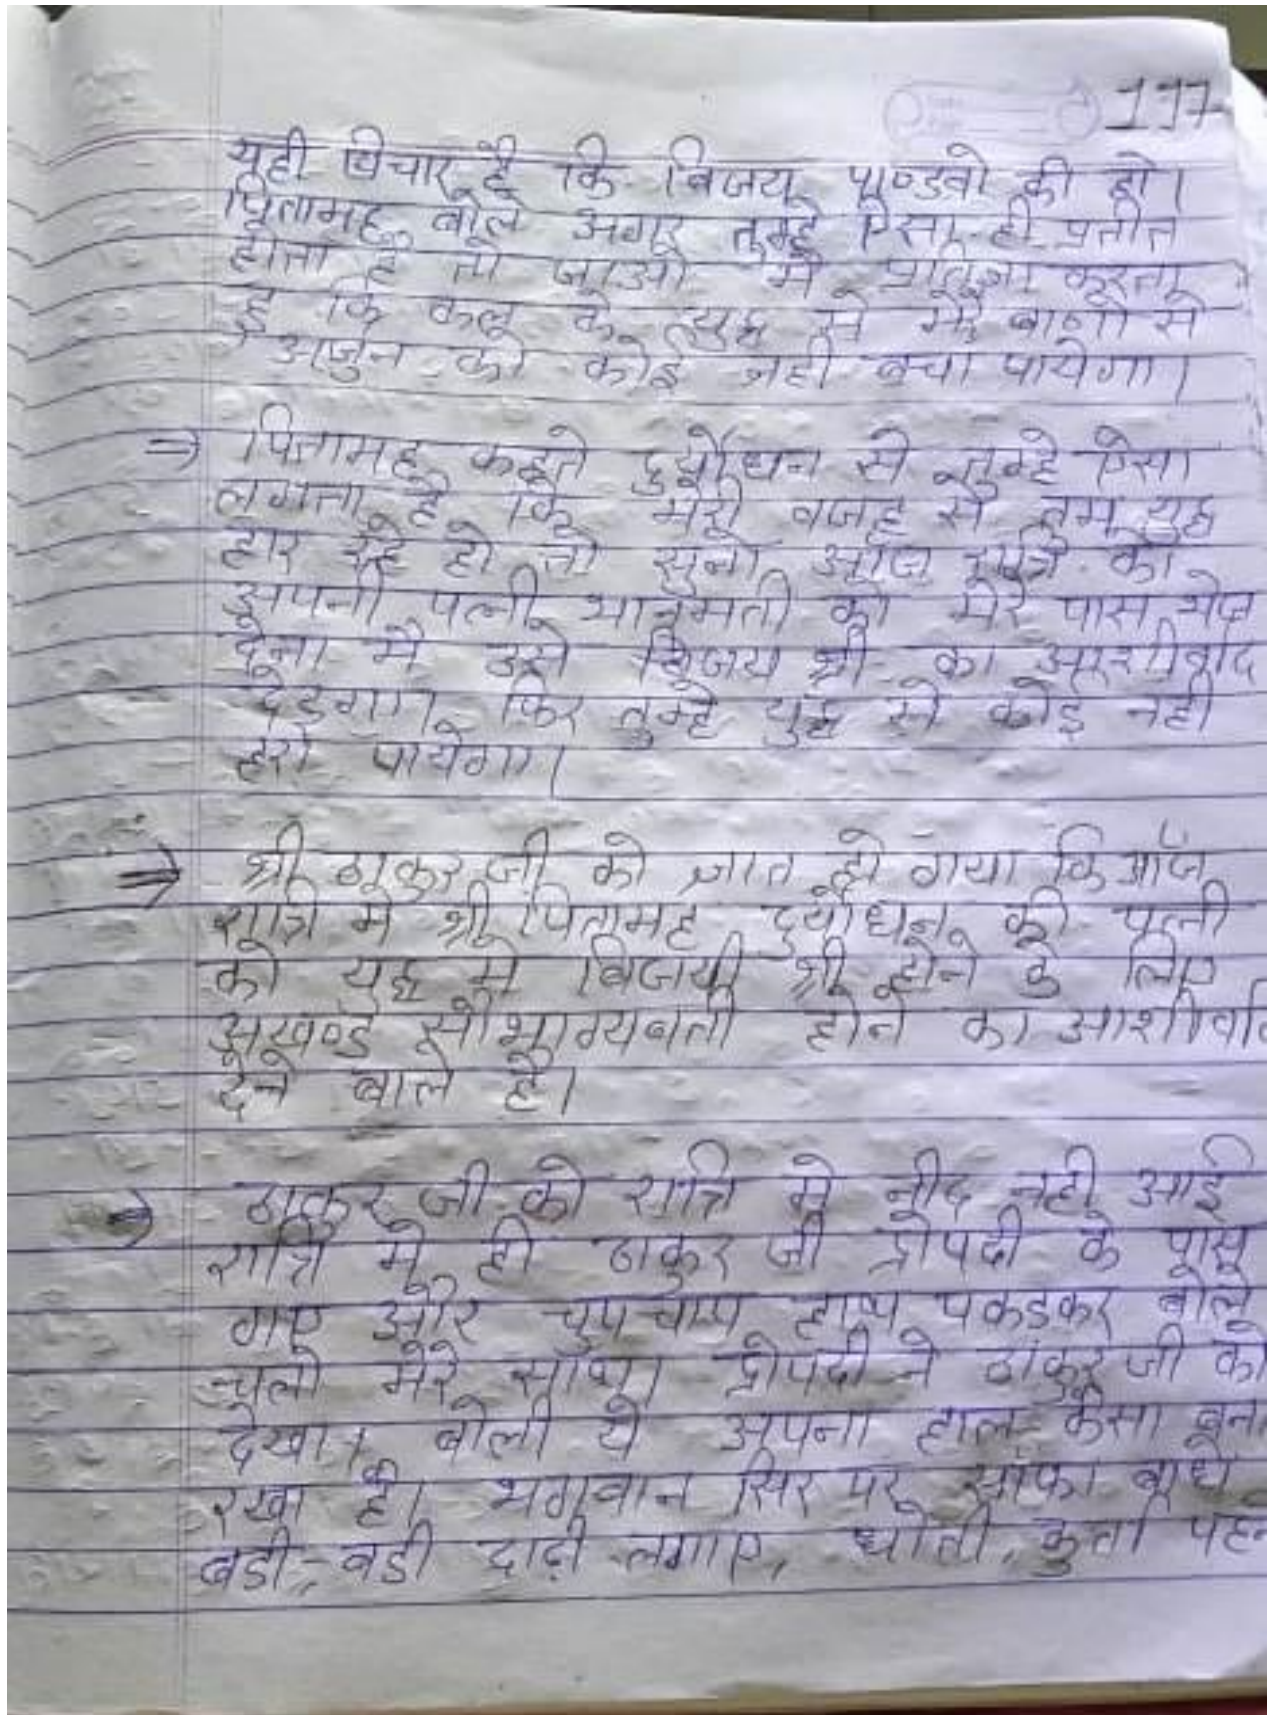 117
यही विचार है कि विजय पाण्डवो की हो।
पितामह बोले अगर तुम्हे ऐसा ही प्रतीत
होता है तो जाओ मै प्रतिज्ञा करता
हु कि कल के युद्ध से मेरे बाणो से
अर्जुन को कोई नही बचा पायेगा।
⇒ पितामह कहते दुर्योधन से तुम्हे ऐसा
लगता है कि मेरी वजह से तुम युद्ध
हार रहे हो तो सुनो आज रात्रि को
अपनी पत्नी भानुमती को मेरे पास भेज
देना मै उसे विजय श्री का आशीर्वाद
देउगा। फिर तुम्हे युद्ध से कोई नही
हरा पायेगा।
⇒ श्री ठाकुर जी को ज्ञात हो गया कि आज
रात्रि मे श्री पितामह दुर्योधन की पत्नी
को युद्ध मे विजयी श्री होने के लिए
अखण्ड सौभाग्यवती होने का आशीर्वाद
देने बाले है।
⇒ ठाकुर जी को रात्रि मे नीद नही आई
रात्रि मे ही ठाकुर जी द्रोपदी के पास
गए और चुपचाप हाथ पकडकर बोले
चलो मेरे साथ। द्रोपदी ने ठाकुर जी को
देखा। बोली ये अपना हाल कैसा बना
रखा है। भगवान सिर पर साफा बाधे
बडी-बडी दाढ़ी लगाए, धोती, कुर्ता पहन